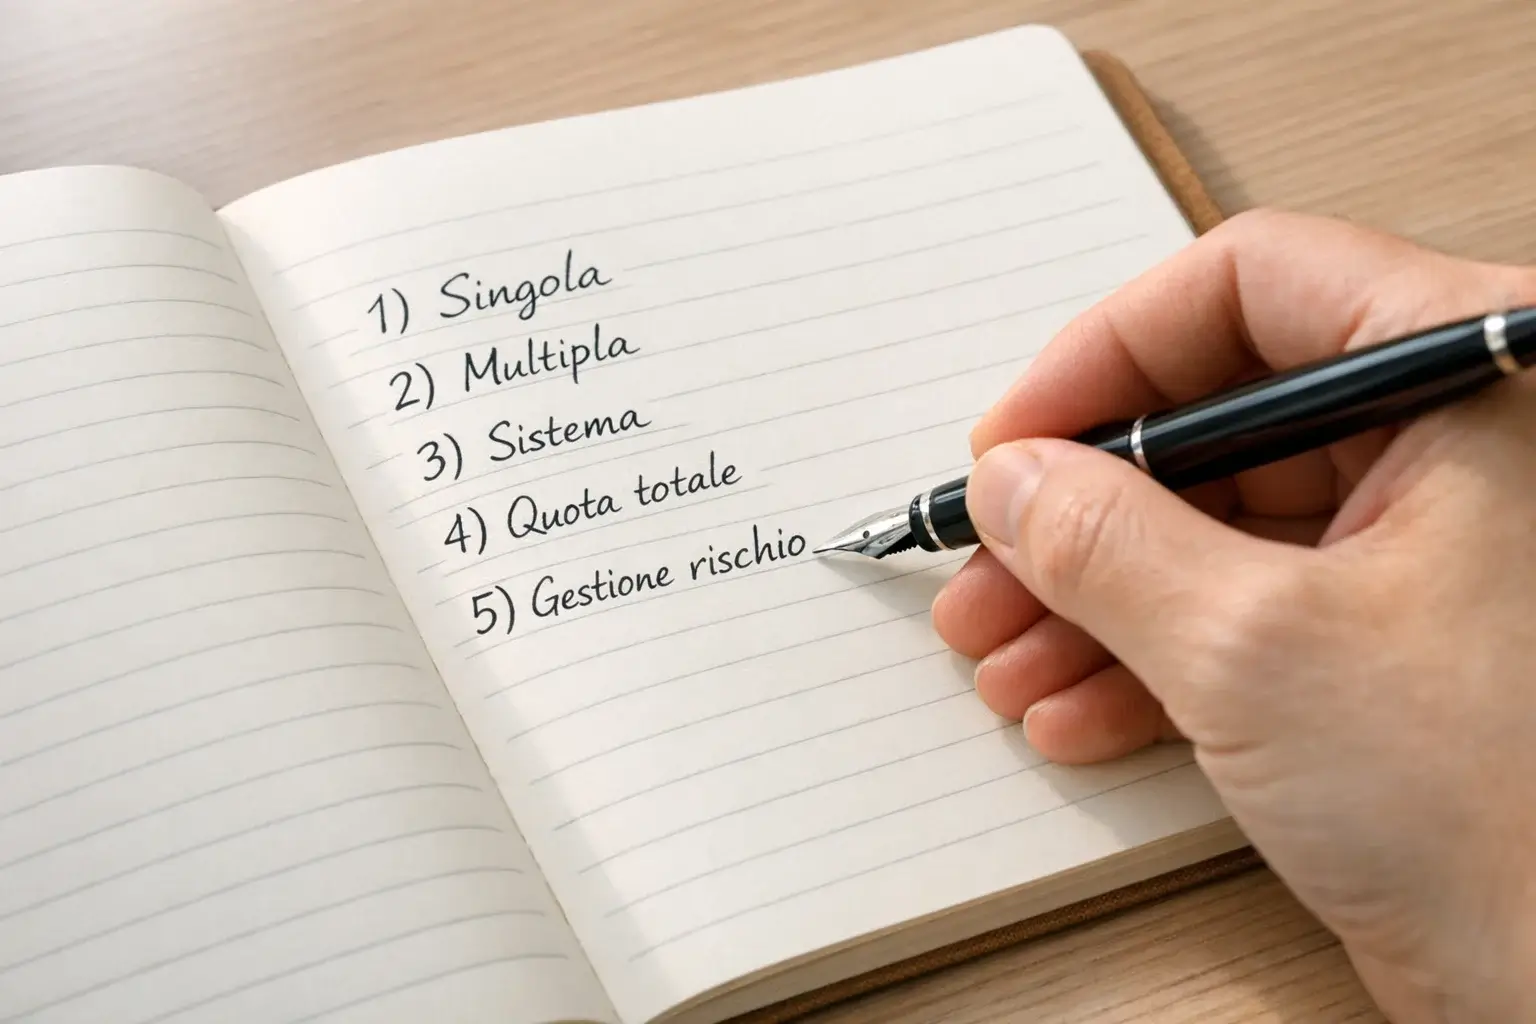 1) Singola
2) Multipla
3) Sistema
4) Quota totale
5) Gestione rischio